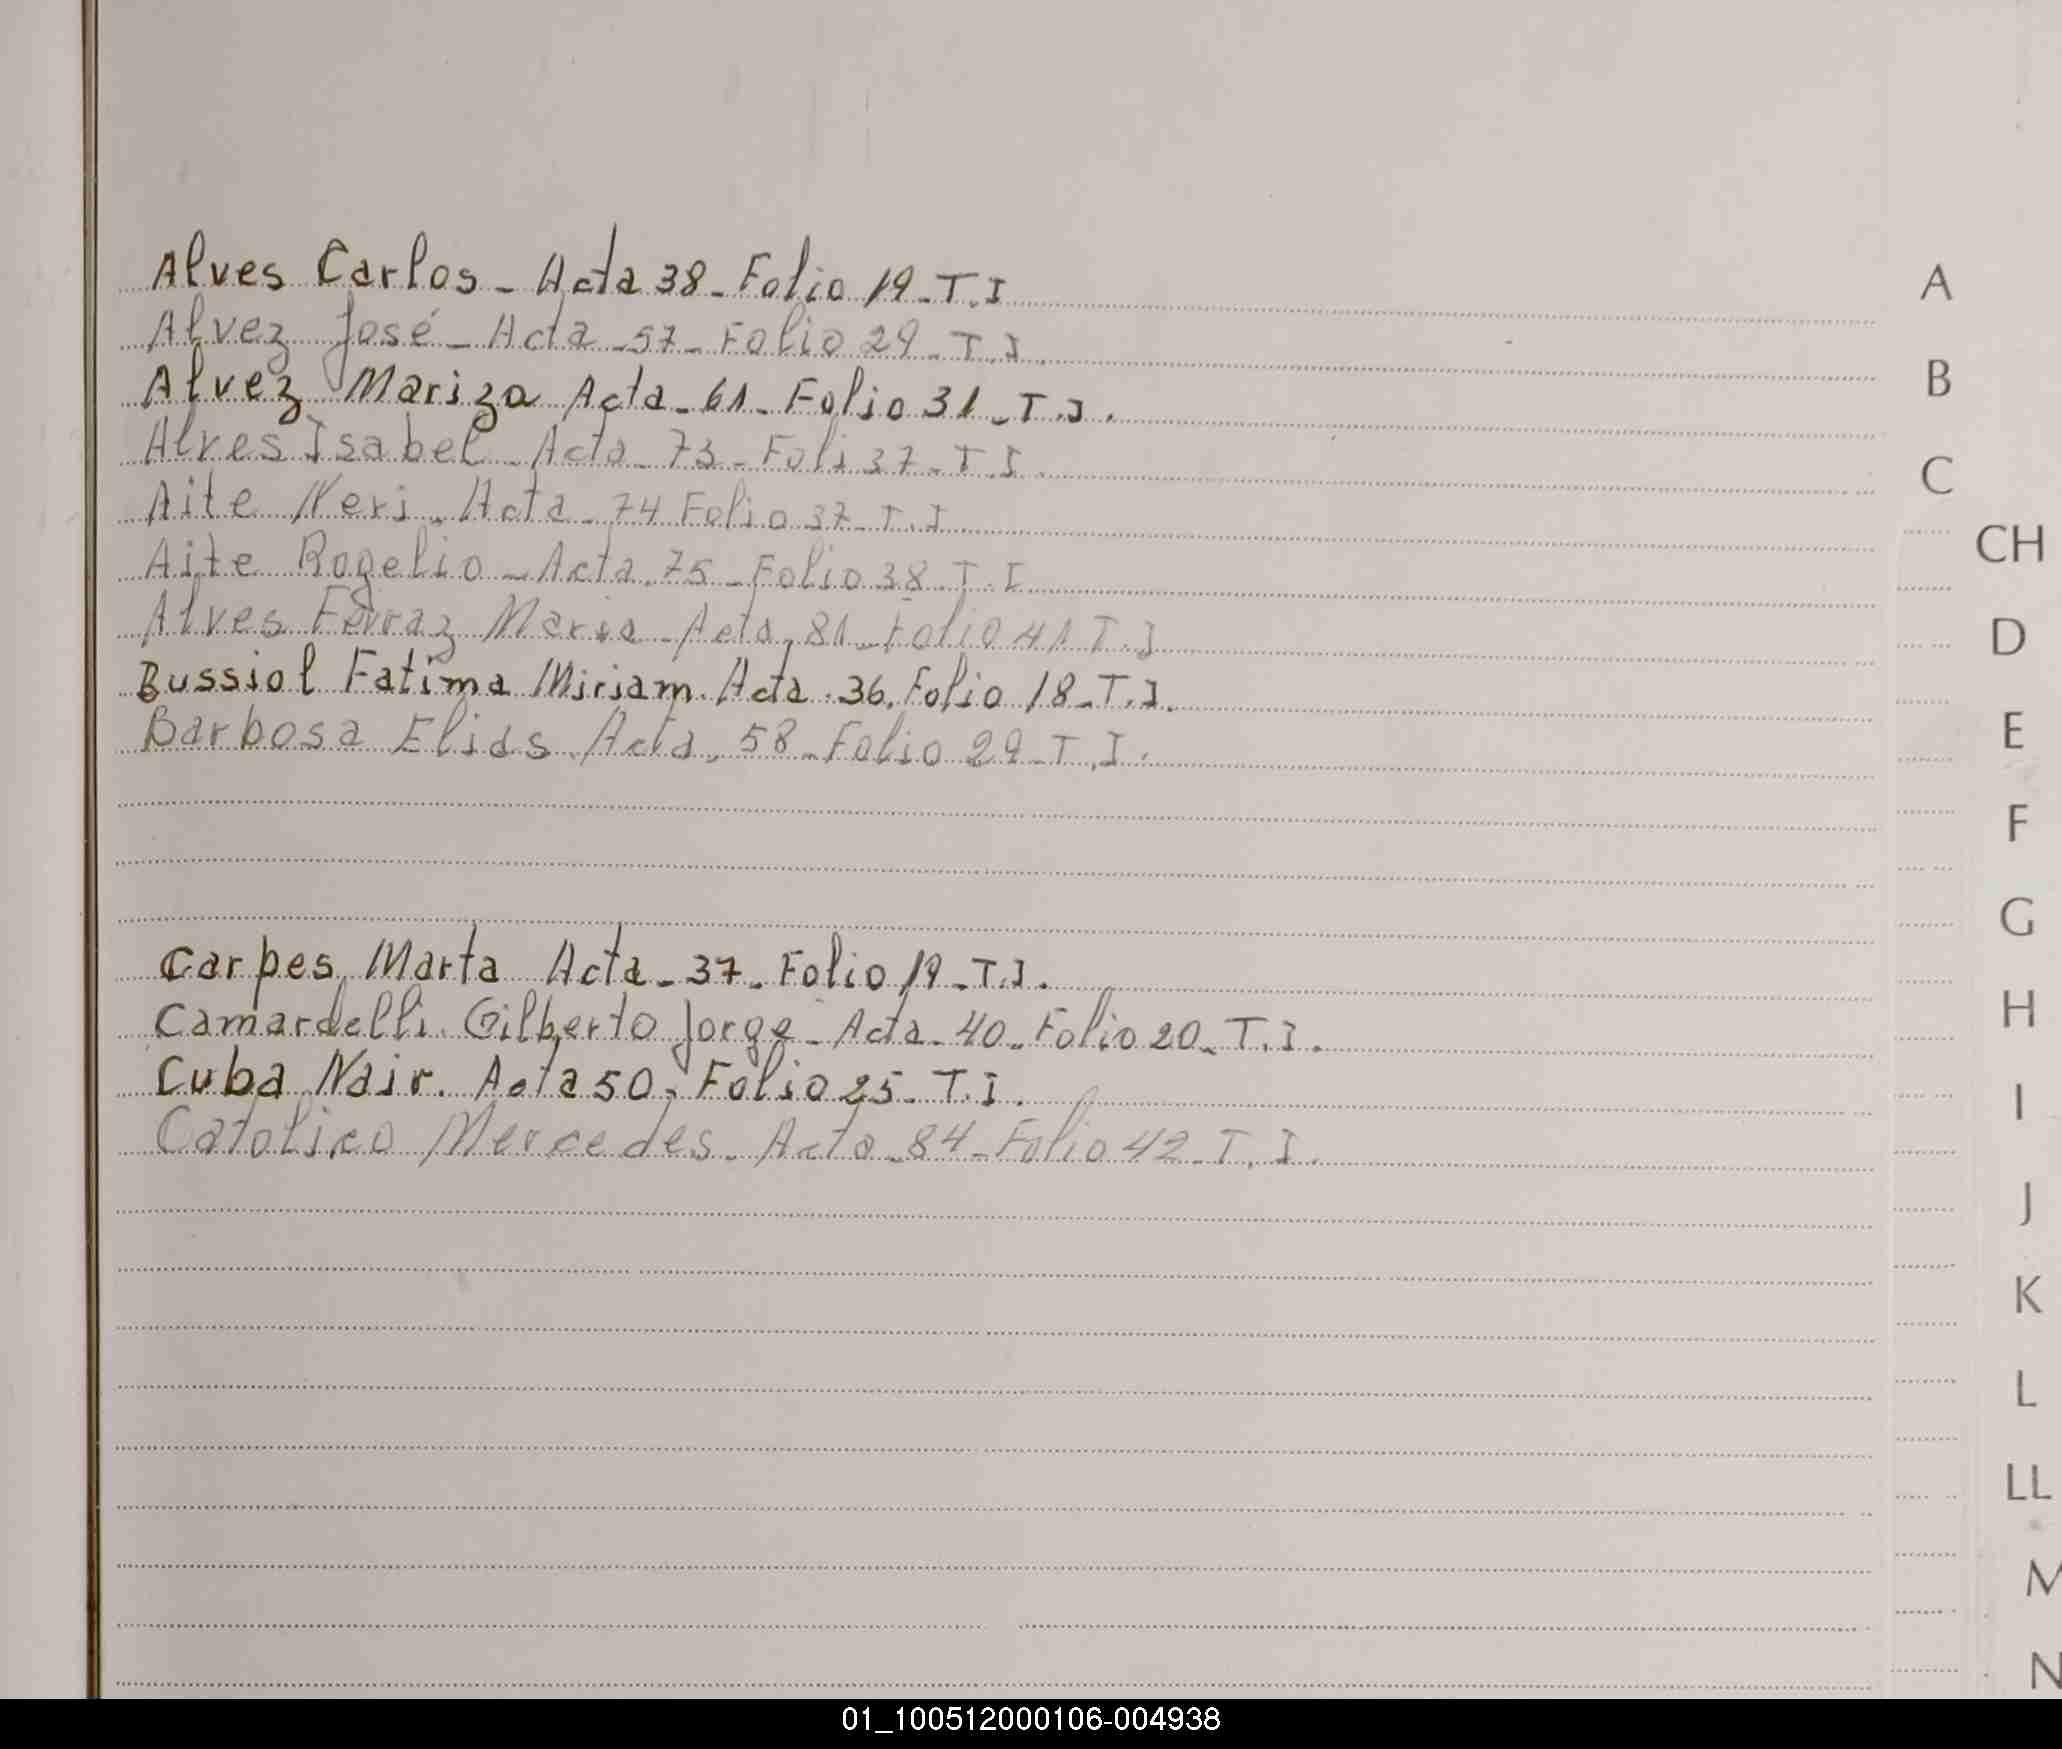 Alves Carlos - Acta 38 - Folio 19 - T.I
Alvez José - Acta - 57 - Folio 29 - T.I.
Alvez Mariza Acta - 61 - Folio 31 - T.I.
Alves Isabel - Acta - 73 - Foli 37 - T.I.
Aite Neri. Acta - 74 Folio 37 - T.I
Aite Rogelio - Acta. 75 - Folio 38 - T.I
Alves Ferraz Maria - Acta, 81 - Folio 41 T.I
Bussiol Fatima Miriam. Acta. 36. Folio 18 - T.I.
Barbosa Elias. Acta, 58 - Folio 29 - T.I.
Carpes Marta Acta - 37 - Folio 19 - T.I.
Camardelli Gilberto Jorge - Acta - 40 - Folio 20 - T.I.
Cuba Nair. Acta 50, Folio 25 - T.I.
Catolico Mercedes - Acta - 84 - Folio 42 - T.I.
A
B
C
CH
D
E
F
G
H
I
J
K
L
LL
M
N
01_100512000106-004938